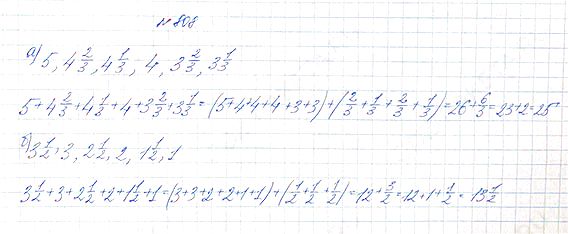 № 808
а) 5, 4 2/3, 4 1/3, 4, 3 2/3, 3 1/3
5+4 2/3+4 1/3+4+3 2/3+3 1/3=(5+4+4+4+3+3)+(2/3+1/3+2/3+1/3)=26+6/3=23+2=25
б) 3 1/2, 3, 2 1/2, 2, 1 1/2, 1
3 1/2+3+2 1/2+2+1 1/2+1=(3+3+2+2+1+1)+(1/2+1/2+1/2)=12+3/2=12+1+1/2=13 1/2